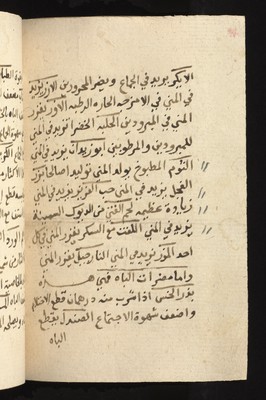 يزيد في الجماع ويضر المحرورين الارز يزيد
في المني في الامزجه الحاره الرطبه
المني في المبرودين الحلبه الخضرا تزيد في المني
للمبرودين والمرطوبين ابو زيدان يزيد في المني
الثوم المطبوخ يولد المني توليد اصالحا
الفجل يزيد في المني حب العزيز يزيد في المني
زيادة عظيمه لحم الفتي من الديوك السمينة
يزيد في المني اللفت مع السكر يغزر المني في كل
احد الموز يزيد في المني النارجيل يغزر المني
واما مضرات الباه فهي هذه
بذر الخس اذا شرب منه درهمان قطع الاحتلام
واضعف شهوة الاجتماع الصندل يقطع
الباه